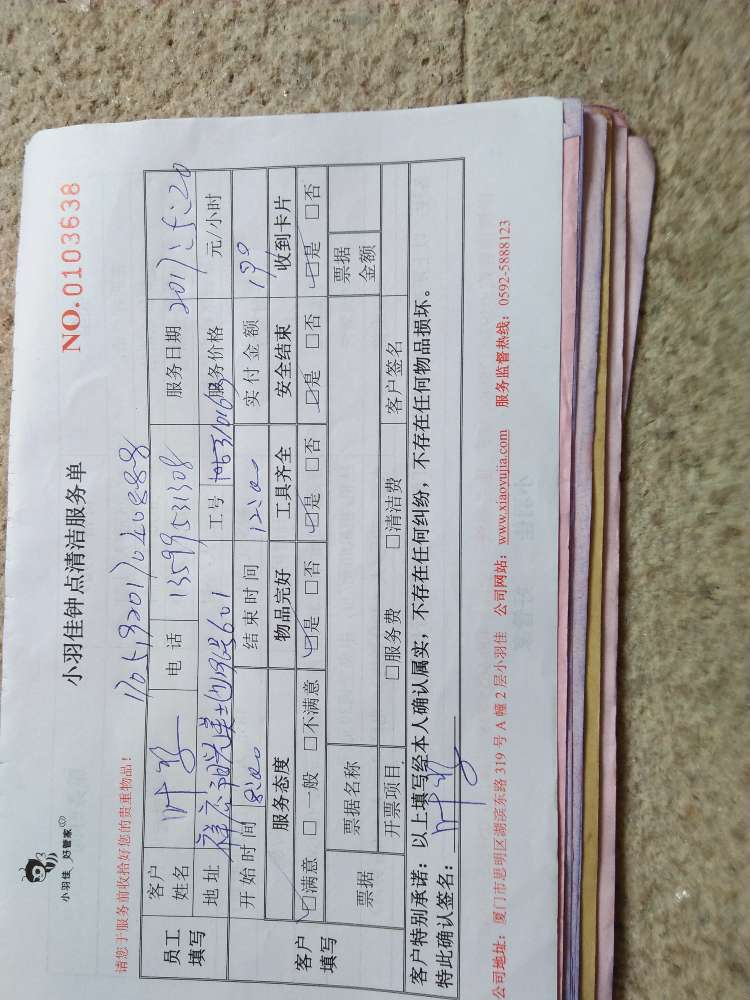 小羽佳 好管家
小羽佳钟点清洁服务单
NO.0103638
请您于服务前收拾好您的贵重物品！
员工填写
客户姓名 叶 电话 13599531308 服务日期 2017:5:20
地址 601 工号 服务价格 元/小时
开始时间 8:00 结束时间 12:00 实付金额 190
客户填写
服务态度 物品完好 工具齐全 安全结束 收到卡片
☑满意 □一般 □不满意 ☑是 □否 ☑是 □否 ☑是 □否 ☑是 □否
票据 票据名称 票据金额
开票项目 □服务费 □清洁费 客户签名
客户特别承诺：以上填写经本人确认属实，不存在任何纠纷，不存在任何物品损坏。
特此确认签名：叶
公司地址：厦门市思明区湖滨东路 319 号 A 幢 2 层小羽佳 公司网站：www.xiaoyujia.com 服务监督热线：0592-5888123